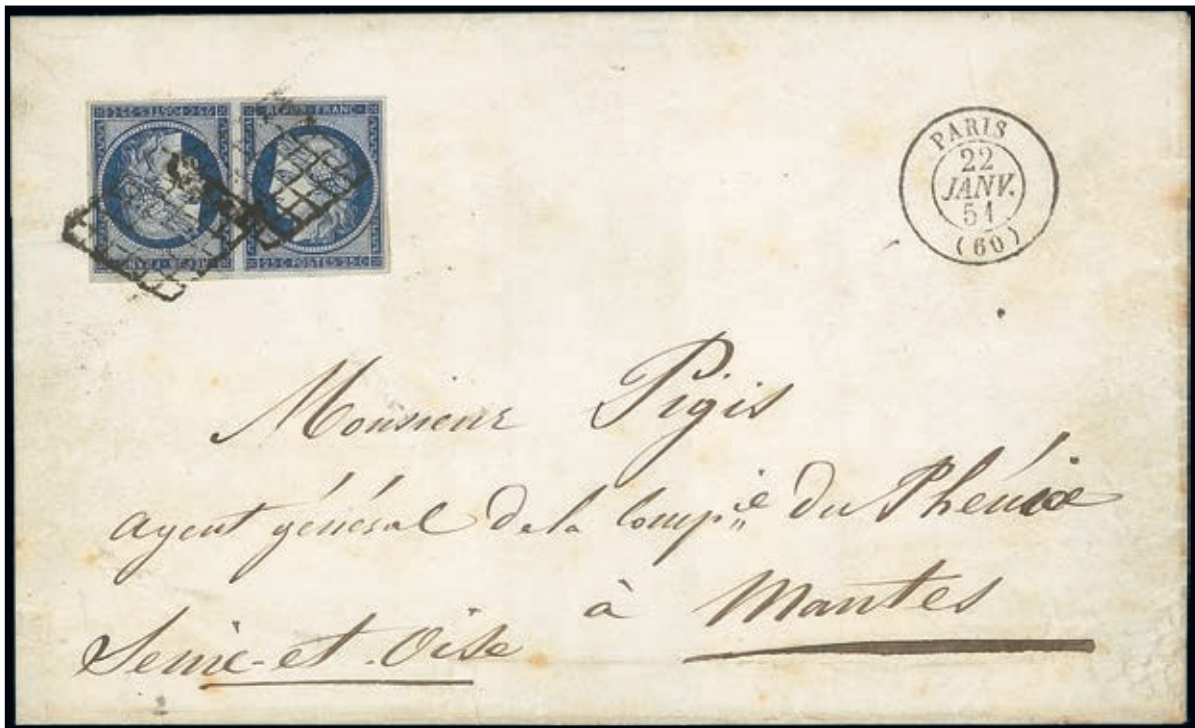 25 C POSTES 25 C
REPUB. FRANC.
REPUB. FRANC.
25 C POSTES 25 C
PARIS
22
JANV.
51
(60)
Monsieur Pigis
agent général de la Comp.ie du Phénix
à Mantes
Seine-et-Oise